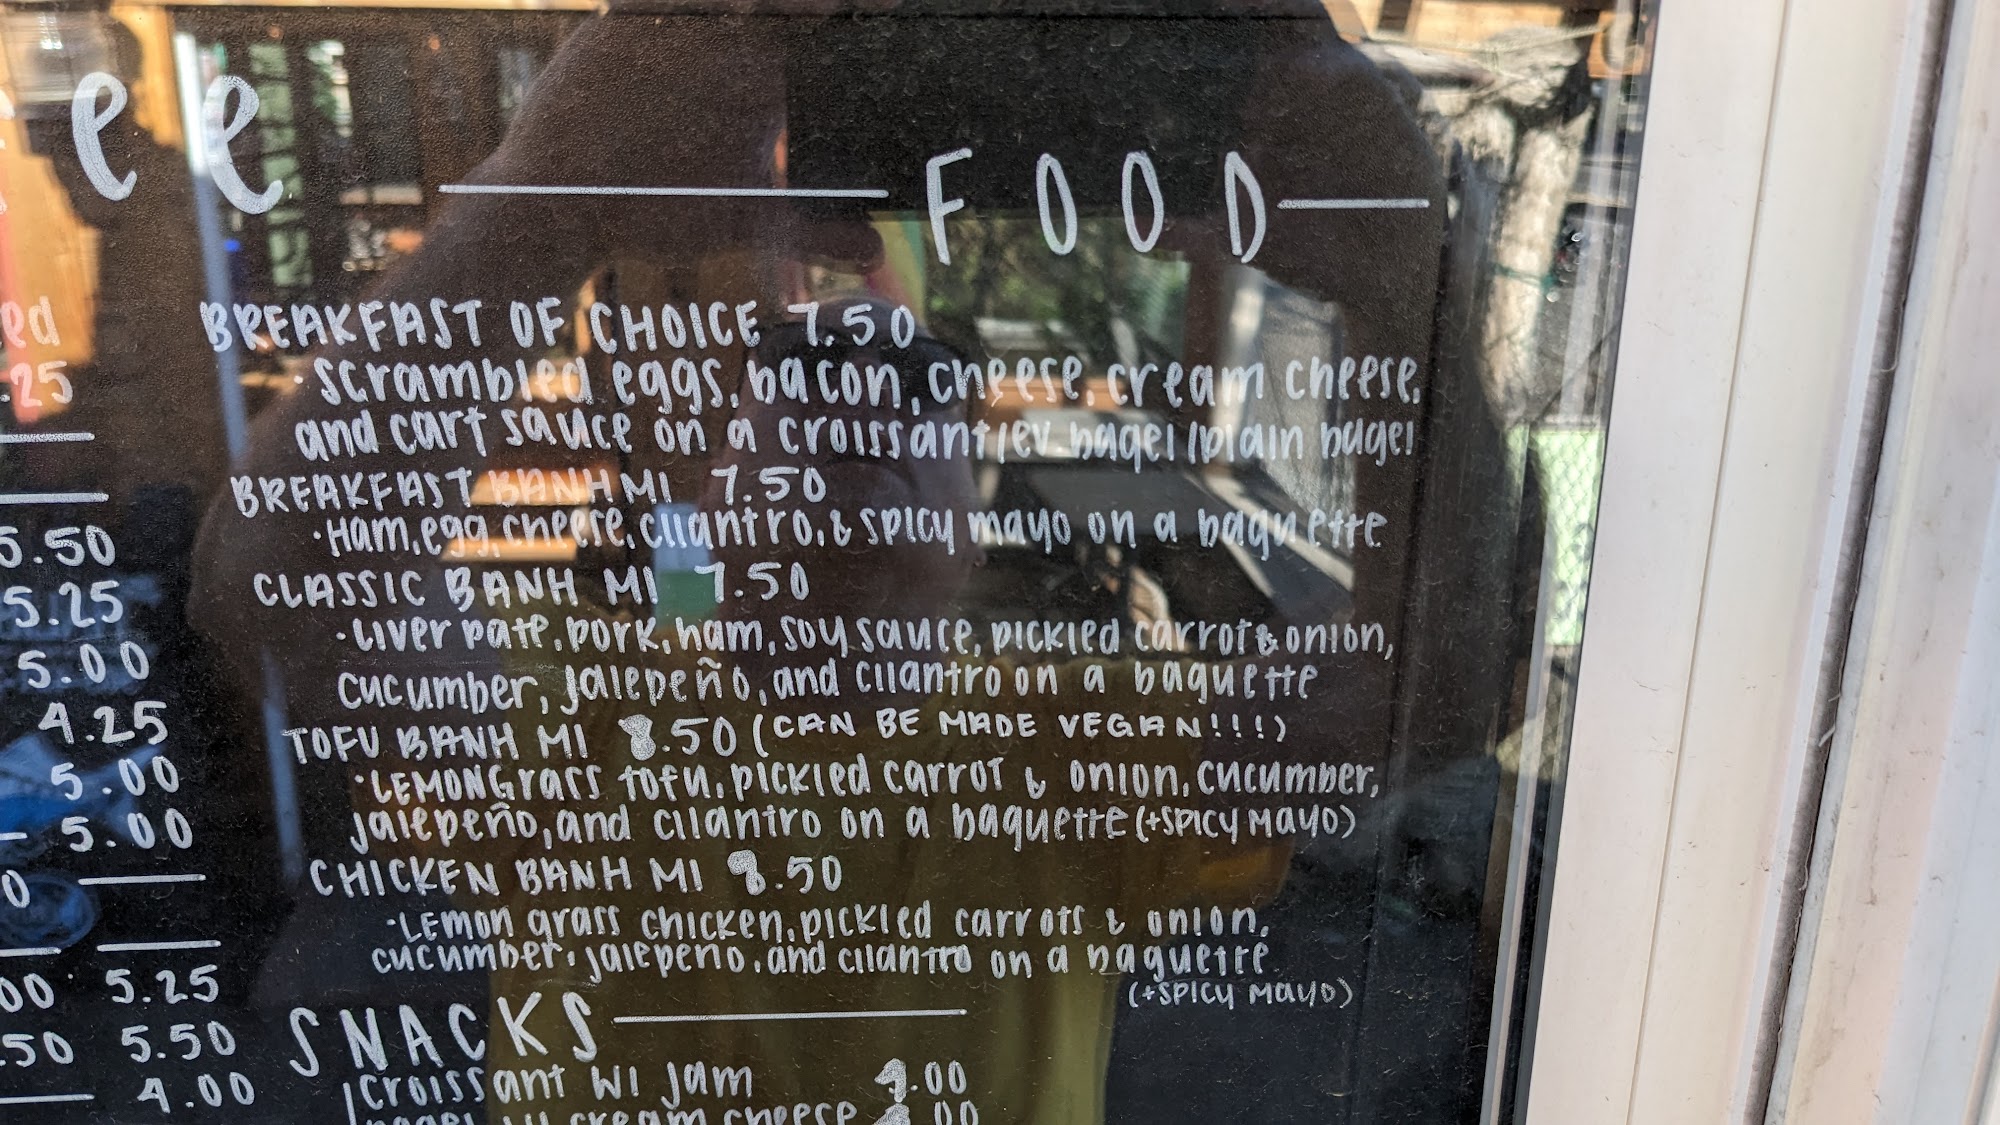 ee
FOOD
ed
.25
5.50
5.25
5.00
4.25
5.00
5.00
0
00 5.25
.50 5.50
4.00
BREAKFAST OF CHOICE 7.50
· scrambled eggs, bacon, cheese, cream cheese,
and cart sauce on a croissant/ev. bagel/plain bagel
BREAKFAST BANH MI 7.50
· Ham, egg, cheese, cilantro, & spicy mayo on a baguette
CLASSIC BANH MI 7.50
· Liver pate, pork, ham, soy sauce, pickled carrot & onion,
cucumber, jalepeño, and cilantro on a baguette
TOFU BANH MI 8.50 (CAN BE MADE VEGAN!!!)
· LEMONGrass tofu, pickled carrot & onion, cucumber,
jalepeño, and cilantro on a baguette (+SPICY MAYO)
CHICKEN BANH MI 8.50
· Lemon grass chicken, pickled carrots & onion,
cucumber, jalepeno, and cilantro on a baguette
(+SPICY MAYO)
SNACKS
croissant w/ jam 4.00
bagel w/ cream cheese .00